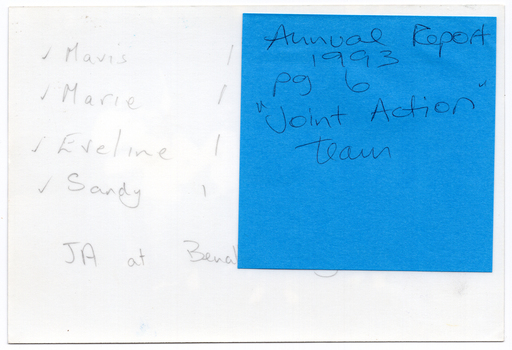 ✓ Mavis 1
✓ Marie 1
✓ Eveline 1
✓ Sandy 1
JA at
Annual Report
1993
pg 6
"Joint Action"
Team